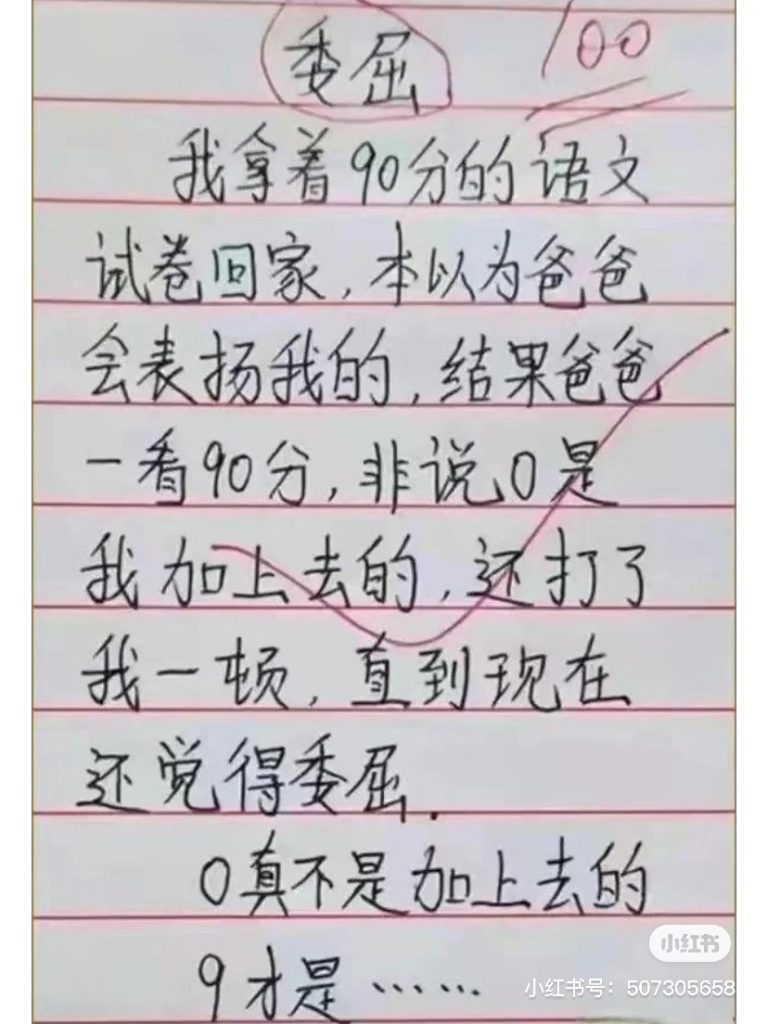 委屈 100
我拿着90分的语文
试卷回家,本以为爸爸
会表扬我的,结果爸爸
一看90分,非说0是
我加上去的,还打了
我一顿,直到现在
还觉得委屈.
0真不是加上去的
9才是……
小红书
小红书号:507305658